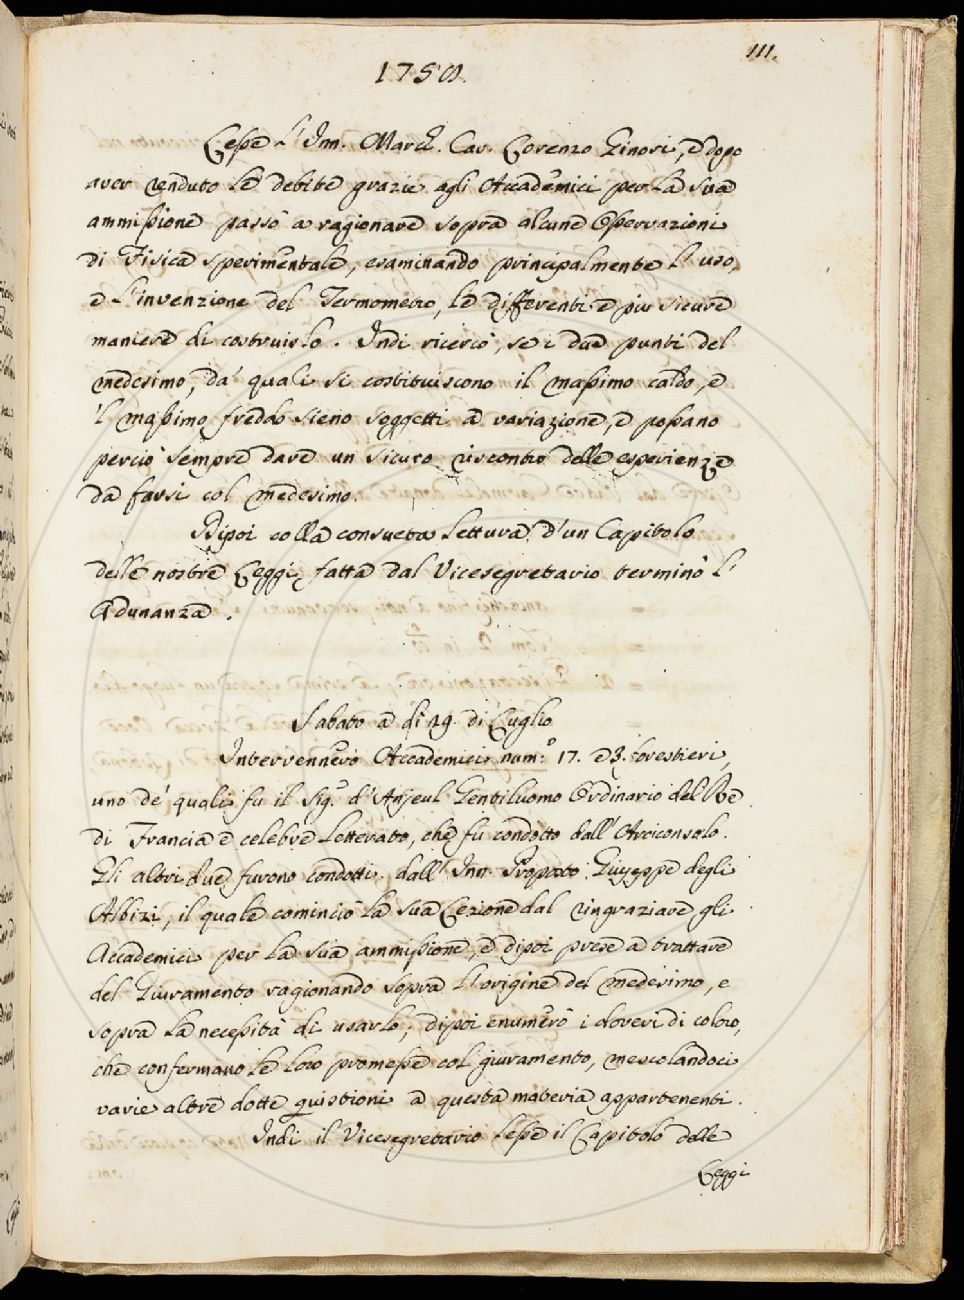 111.
1758.
Lesse l'Inn. March. Cav. Lorenzo Ginori, e dopo
aver renduto le debite grazie agli Accademici per la sua
ammissione passò a ragionare sopra alcune Osservazioni
di Fisica sperimentale, esaminando principalmente l'uso,
e l'invenzione del Termometro, le differenti e più sicure
maniere di costruirlo. Indi ricercò, se i due punti del
medesimo, da' quali si costituiscono il massimo caldo, e
'l massimo freddo sieno soggetti a variazione, e possano
perciò sempre dare un sicuro riscontro delle esperienze
da farsi col medesimo.
Dipoi colla consueta lettura d'un Capitolo
delle nostre Leggi, fatta dal Vicesegretario terminò l'
Adunanza.
Sabato a dì 29. di Luglio
Intervennero Accademici num.º 17. e 3. forestieri,
uno de' quali fu il Sig.r d'Anjeul Gentiluomo Ordinario del Re
di Francia e celebre Letterato, che fu condotto dall'Arciconsolo.
Gli altri due furono condotti dall'Inn. Proposto Giuseppe degli
Albizi, il quale cominciò la sua Lezione dal ringraziare gli
Accademici per la sua ammissione, e dipoi prese a trattare
del Giuramento ragionando sopra l'origine del medesimo, e
sopra la necessità di usarlo, dipoi enumerò i doveri di coloro,
che confermano le loro promesse col giuramento, mescolandoci
varie altre dotte quistioni a questa materia appartenenti.
Indi il Vicesegretario lesse il Capitolo delle
Leggi